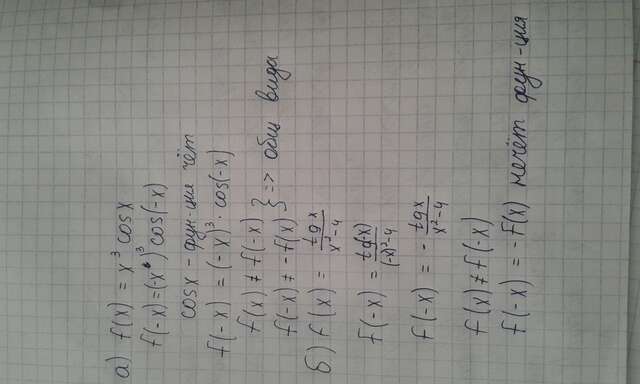 а) f(x) = x³ cosx
f(-x) = (-x)³ cos(-x)
cosx - фун-ция чёт
f(-x) = (-x)³ · cos(-x)
f(x) ≠ f(-x)
f(-x) ≠ -f(x) } => общ вида
б) f(x) = tgx / x²-4
f(-x) = tg(-x) / (-x)²-4
f(-x) = - tgx / x²-4
f(x) ≠ f(-x)
f(-x) = -f(x) нечёт фун-ция